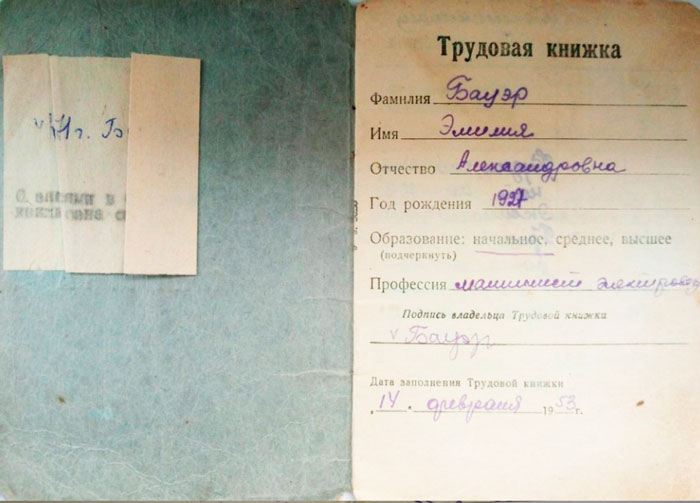 г. Б
Трудовая книжка
Фамилия Бауэр
Имя Эмилия
Отчество Александровна
Год рождения 1927
Образование: начальное, среднее, высшее
(подчеркнуть)
Профессия машинист электровоз
Подпись владельца Трудовой книжки
Бауэр
Дата заполнения Трудовой книжки
„14" февраля 1953 г.